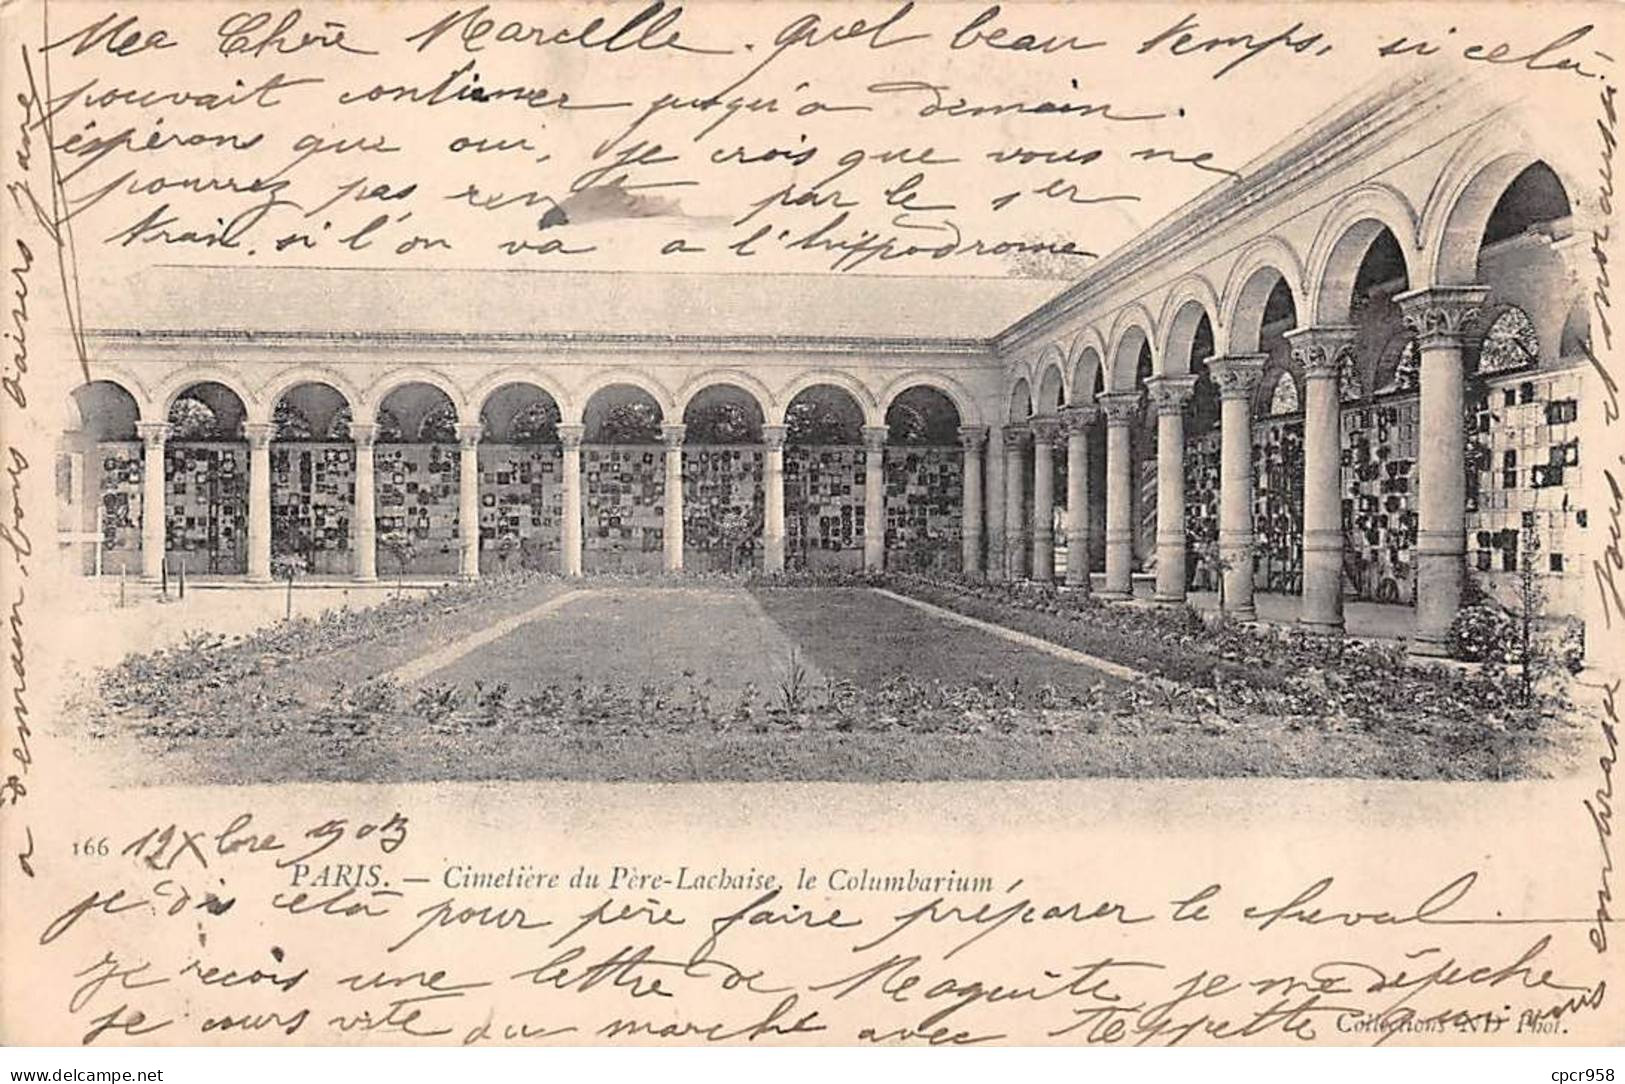 Ma Chère Marcelle. quel beau temps, si cela
pouvait continuer jusqu'a demain.
éspérons que oui, je crois que vous ne
pourrez pas par le 1er
train. si l'on va a l'hippodrome
166
12 Xbre 1903
PARIS. — Cimetière du Père-Lachaise, le Columbarium
je dis cela pour père faire préparer le cheval.
Je reçois une lettre de je me dépêche
Je cours vite au marché avec qui
vous embrasse tous, et moi aussi
a demain, bons baisers Jane
Collections ND Phot.
Delcampe.net
cpcr958